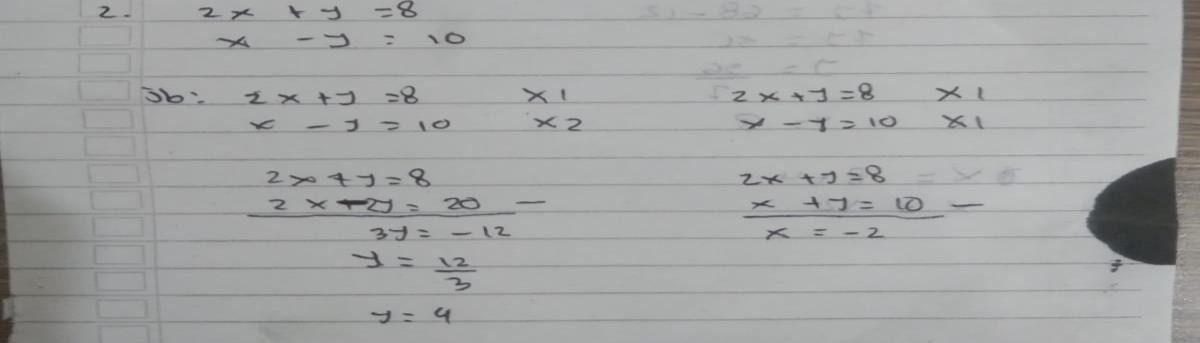 2. 2x + y = 8
x - y = 10
Jb: 2x + y = 8 x 1
x - y = 10 x 2
2x + y = 8
2x - 2y = 20 -
3y = -12
y = 12/3
y = 4
2x + y = 8 x 1
x - y = 10 x 1
2x + y = 8
x + y = 10 -
x = -2